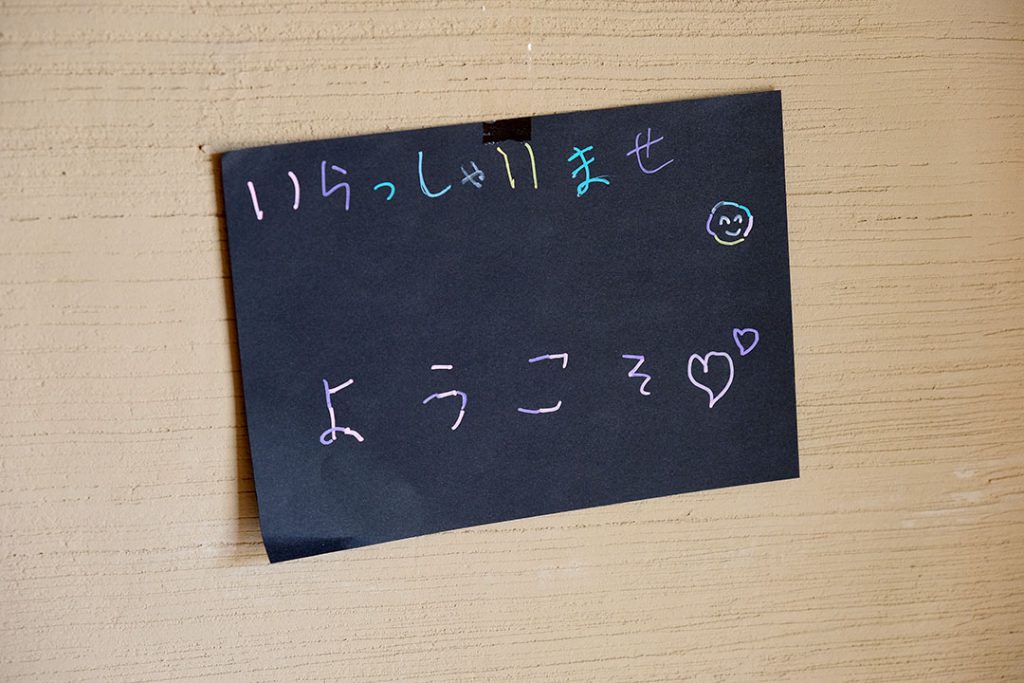 いらっしゃいませ
ようこそ♡♡